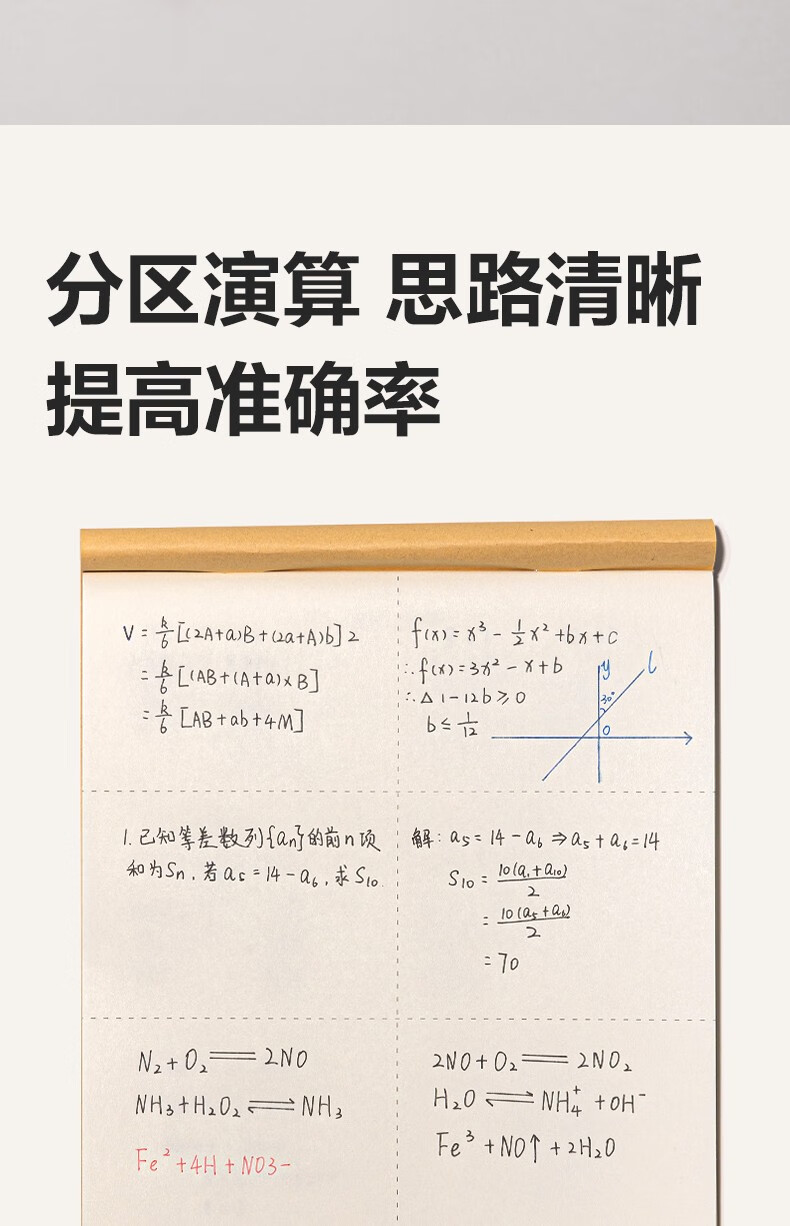 分区演算 思路清晰
提高准确率
V = k/6 [(2A+a)B+(2a+A)b] 2
= k/6 [(AB+(A+a)×B]
= k/6 [AB+ab+4M]
f(x) = x³ - 1/2 x² + bx + c
∴ f(x) = 3x² - x + b
∴ Δ 1-12b ≥ 0
b ≤ 1/12
y
l
30°
0
1. 已知等差数列{an}的前n项
和为Sn, 若a5 = 14 - a6, 求S10.
解: a5 = 14 - a6 ⇒ a5 + a6 = 14
S10 = 10(a1+a10)/2
= 10(a5+a6)/2
= 70
N₂ + O₂ == 2NO
NH₃ + H₂O₂ ⇌ NH₃
Fe² + 4H + NO3-
2NO + O₂ == 2NO₂
H₂O ⇌ NH₄⁺ + OH⁻
Fe³ + NO↑ + 2H₂O